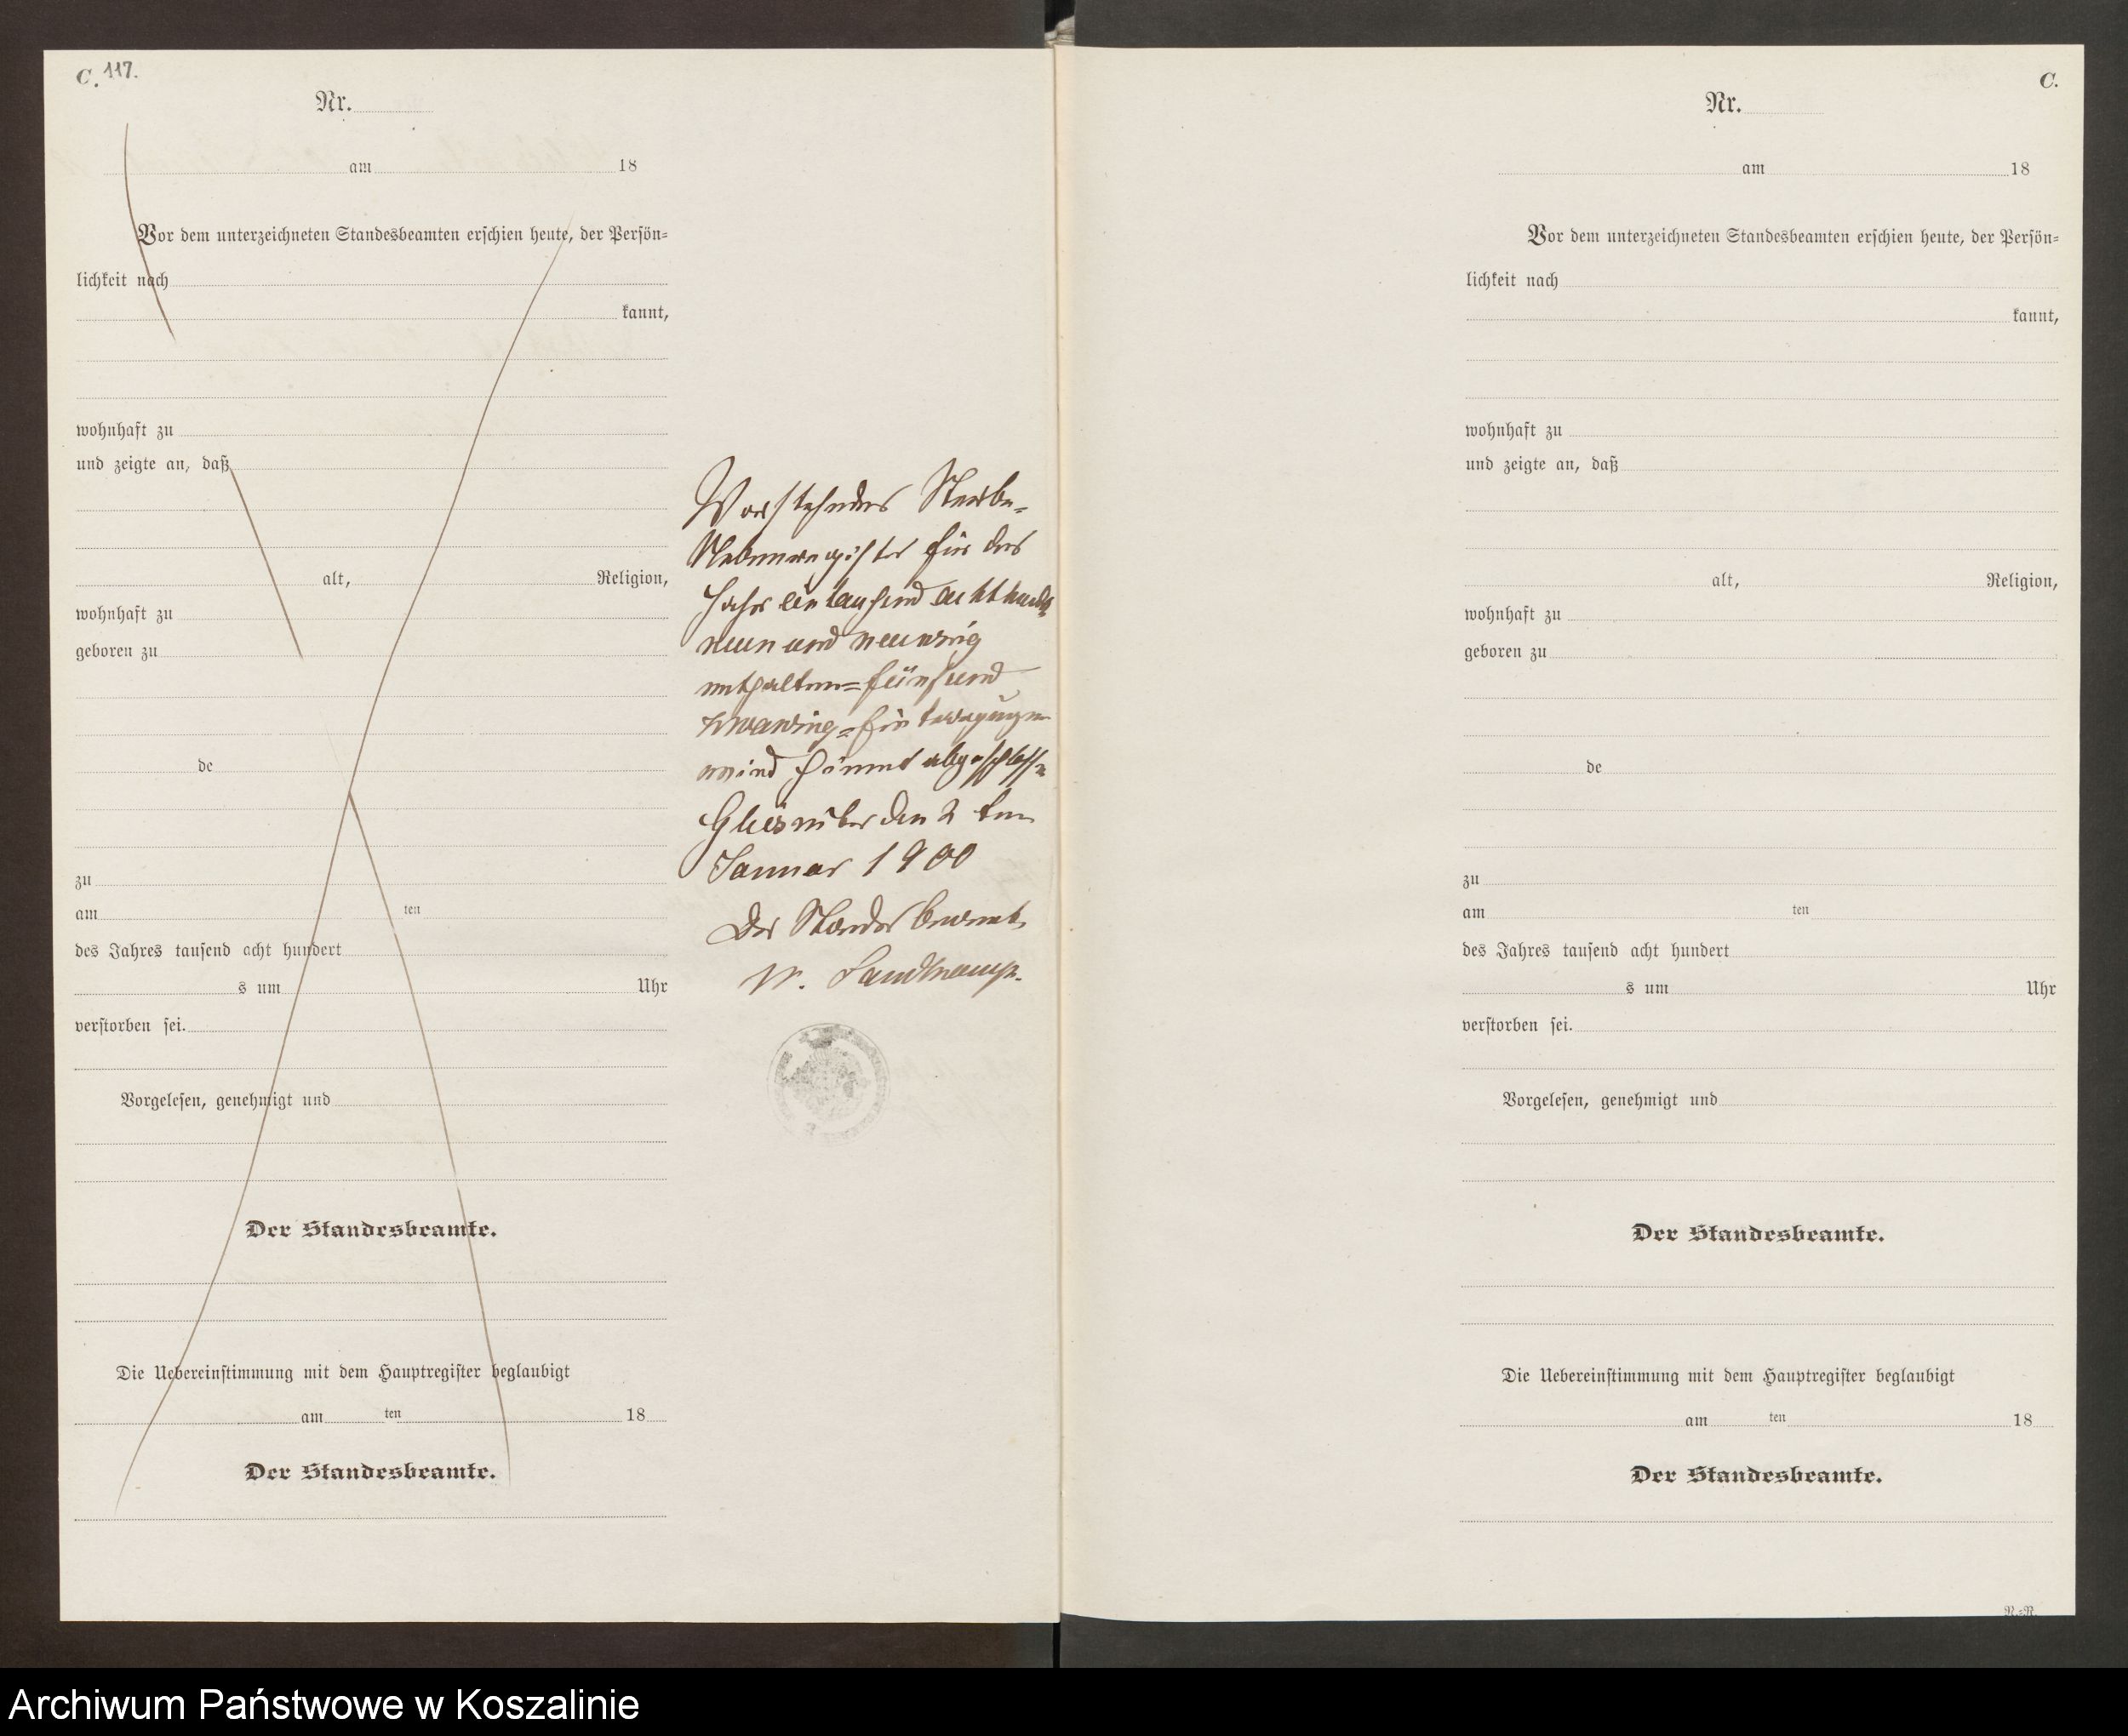 C. 117.
Nr.
am 18
Vor dem unterzeichneten Standesbeamten erschien heute, der Persön-
lichkeit nach
kannt,
wohnhaft zu
und zeigte an, daß
alt, Religion,
wohnhaft zu
geboren zu
de
zu
am ten
des Jahres tausend acht hundert
s um Uhr
verstorben sei.
Vorgelesen, genehmigt und
Der Standesbeamte.
Die Uebereinstimmung mit dem Hauptregister beglaubigt
am ten 18
Der Standesbeamte.
Vorstehendes Sterbe-
Nebenregister für das
Jahr ein tausend achthundert
neun und neunzig
enthaltend fünf und
zwanzig Eintragungen
wird hiermit abgeschlossen
den 2 ten
Januar 1900
Der Standesbeamte
C.
Nr.
am 18
Vor dem unterzeichneten Standesbeamten erschien heute, der Persön-
lichkeit nach
kannt,
wohnhaft zu
und zeigte an, daß
alt, Religion,
wohnhaft zu
geboren zu
de
zu
am ten
des Jahres tausend acht hundert
s um Uhr
verstorben sei.
Vorgelesen, genehmigt und
Der Standesbeamte.
Die Uebereinstimmung mit dem Hauptregister beglaubigt
am ten 18
Der Standesbeamte.
Archiwum Państwowe w Koszalinie